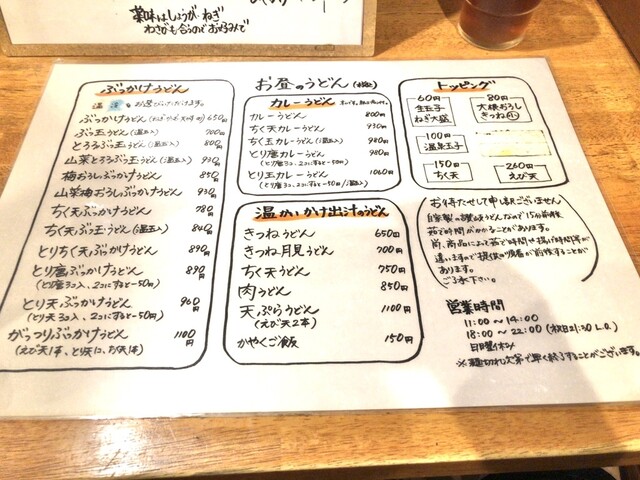 薬味はしょうが、ねぎ
わさびも合うのでお好みで
お昼のうどん
ぶっかけうどん
温 冷 もお選びいただけます。
ぶっかけうどん 650円
ぶっ玉うどん(温玉入) 700円
とろろぶっ玉うどん(温玉入) 800円
山菜とろろぶっ玉うどん(温玉入) 930円
梅おろしぶっかけうどん 850円
山菜梅おろしぶっかけうどん 930円
ちく天ぶっかけうどん 780円
ちく天ぶっ玉うどん(温玉入) 840円
とりちく天ぶっかけうどん 890円
とり唐ぶっかけうどん 890円
(とり唐3コ入、2コにすると-50円)
とり天ぶっかけうどん 960円
(とり天3コ入、2コにすると-50円)
がっつりぶっかけうどん 1100円
カレーうどん
カレーうどん 800円
ちく天カレーうどん 930円
ちく玉カレーうどん(温玉入) 980円
とり唐カレーうどん 980円
(とり唐3コ、2コにすると-50円)
とり玉カレーうどん 1060円
(とり唐3コ、2コにすると-50円/温玉入)
温かいかけ出汁のうどん
きつねうどん 650円
きつね月見うどん 700円
ちく天うどん 750円
肉うどん 850円
天ぷらうどん 1100円
(えび天2本)
かやくご飯 150円
トッピング
60円
生玉子
ねぎ大盛
80円
大根おろし
きつね
100円
温泉玉子
150円
ちく天
260円
えび天
お待たせして申し訳ございません
自家製の讃岐うどんなので15分前後
茹で時間がかかることがあります。
尚、商品によって茹で時間や揚げ時間等が
違いますので提供の順番が前後することが
あります。
ご了承下さい。
営業時間
11:00 ~ 14:00
18:00 ~ 22:00 (21:30 L.O.)
日曜休み
※麺切れ次第で早く終了することがございます。